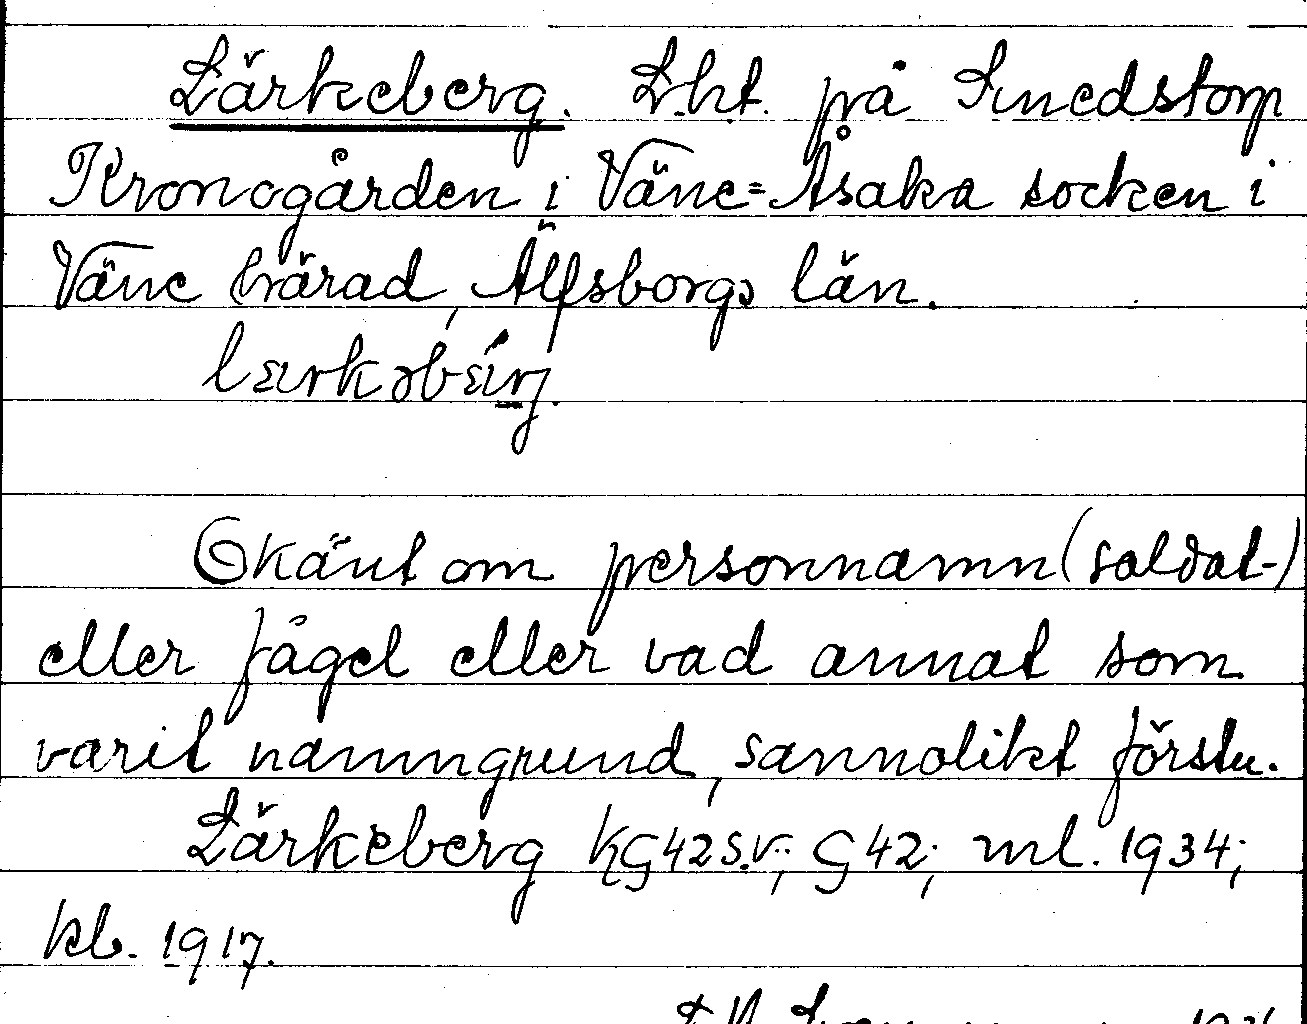 Lärkeberg. Lht. på Smedstorp
Kronogården i Väne=Åsaka socken i
Väne härad, Älfsborgs län.
Okänt om personnamn (soldat-)
eller fågel eller vad annat som
varit namngrund, sannolikt förstn.
Lärkeberg KG42S.V.; G42; ml. 1934;
kb. 1917.